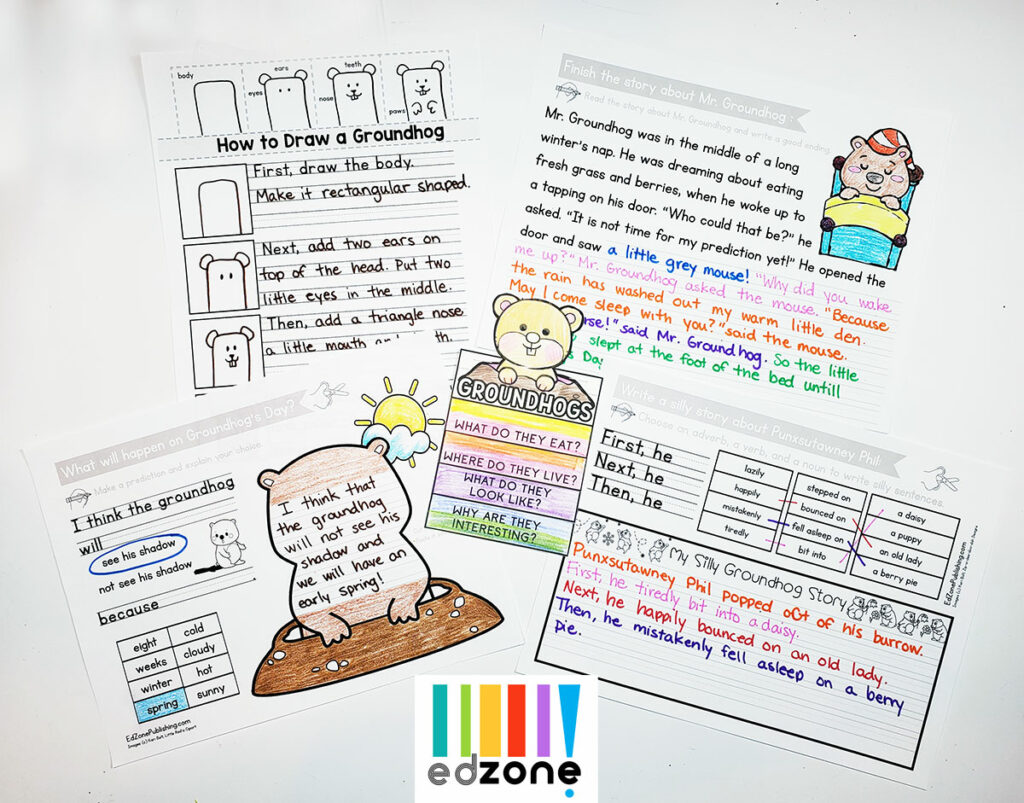 body
ears
eyes
teeth
nose
paws
How to Draw a Groundhog
First, draw the body.
Make it rectangular shaped.
Next, add two ears on
top of the head. Put two
little eyes in the middle.
Then, add a triangle nose
a little mouth
Finish the story about Mr. Groundhog :
Read the story about Mr. Groundhog and write a good ending.
Mr. Groundhog was in the middle of a long
winter's nap. He was dreaming about eating
fresh grass and berries, when he woke up to
a tapping on his door. "Who could that be?" he
asked. "It is not time for my prediction yet!" He opened the
door and saw a little grey mouse! "Why did you wake
me up?" Mr. Groundhog asked the mouse. "Because
the rain has washed out my warm little den.
May I come sleep with you?" said the mouse.
said Mr. Groundhog. So the little
slept at the foot of the bed untill
What will happen on Groundhog's Day?
Make a prediction and explain your choice.
I think the groundhog
will
see his shadow
not see his shadow
because
eight
cold
weeks
cloudy
winter
hot
spring
sunny
EdZonePublishing.com
I think that
the groundhog
will not see his
shadow and
we will have an
early spring!
GROUNDHOGS
WHAT DO THEY EAT?
WHERE DO THEY LIVE?
WHAT DO THEY
LOOK LIKE?
WHY ARE THEY
INTERESTING?
Write a silly story about Punxsutawney Phil:
Choose an adverb, a verb, and a noun to write silly sentences.
First, he
Next, he
Then, he
lazily
happily
mistakenly
tiredly
stepped on
bounced on
fell asleep on
bit into
a daisy
a puppy
an old lady
a berry pie
EdZonePublishing.com
My Silly Groundhog Story
Punxsutawney Phil popped oGt of his burrow.
First, he tiredly bit into a daisy.
Next, he happily bounced on an old lady.
Then, he mistakenly fell asleep on a berry
pie.
edzone